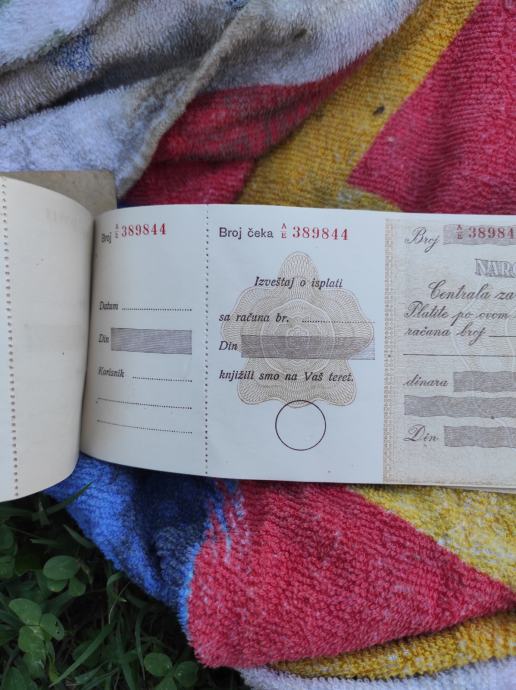 Broj A/E 389844
Datum
Din
Korisnik
Broj čeka A/E 389844
Izveštaj o isplati
sa računa br.
Din
knjižili smo na Vaš teret.
Broj A/E 38984
Centrala za
Platite po ovom
računa broj
dinara
Din